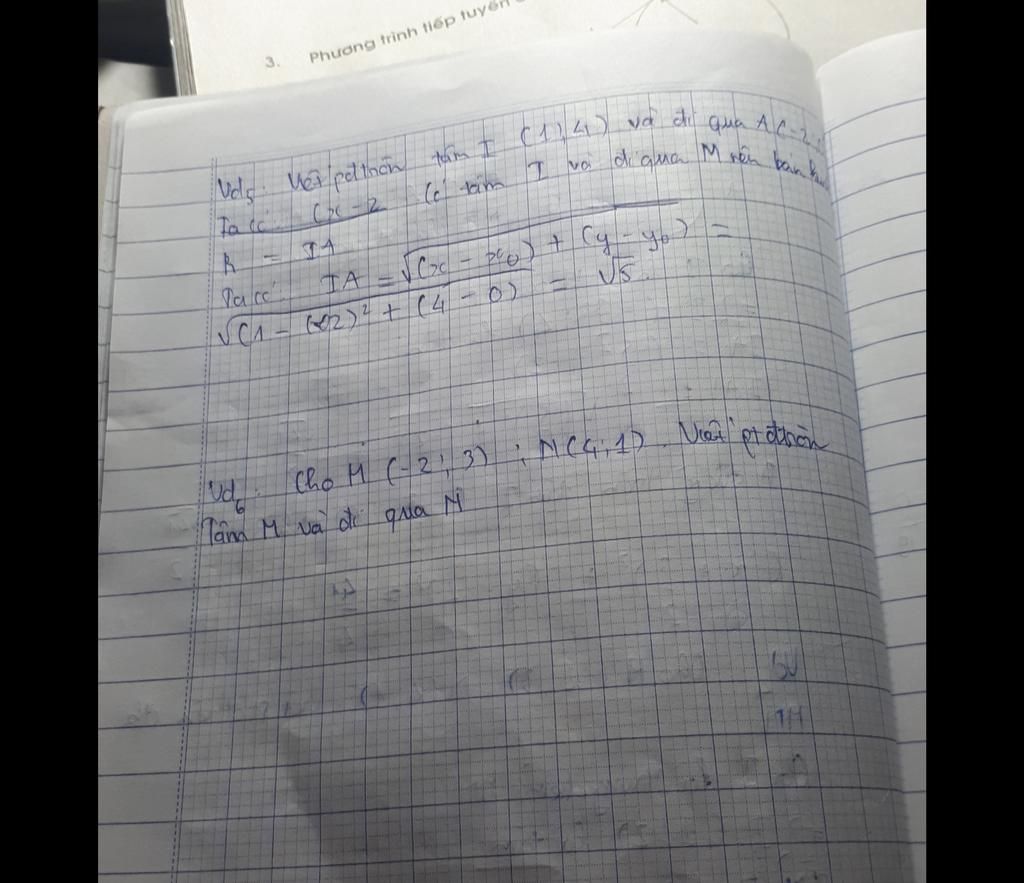 3. Phương trình tiếp tuyến
Vd5: Viết pt đtròn tâm I (1; 4) và đi qua A (-2;
Ta có: (x - 2 Có tâm I và đi qua M nên bán
R = IA
Ta có: IA = √(x - x₀) + (y - y₀) =
√(1 - (-2)² + (4 - 0) = √5.
Vd6: Cho M (-2; 3); N(4; 1). Viết pt đtròn
Tâm M và đi qua N